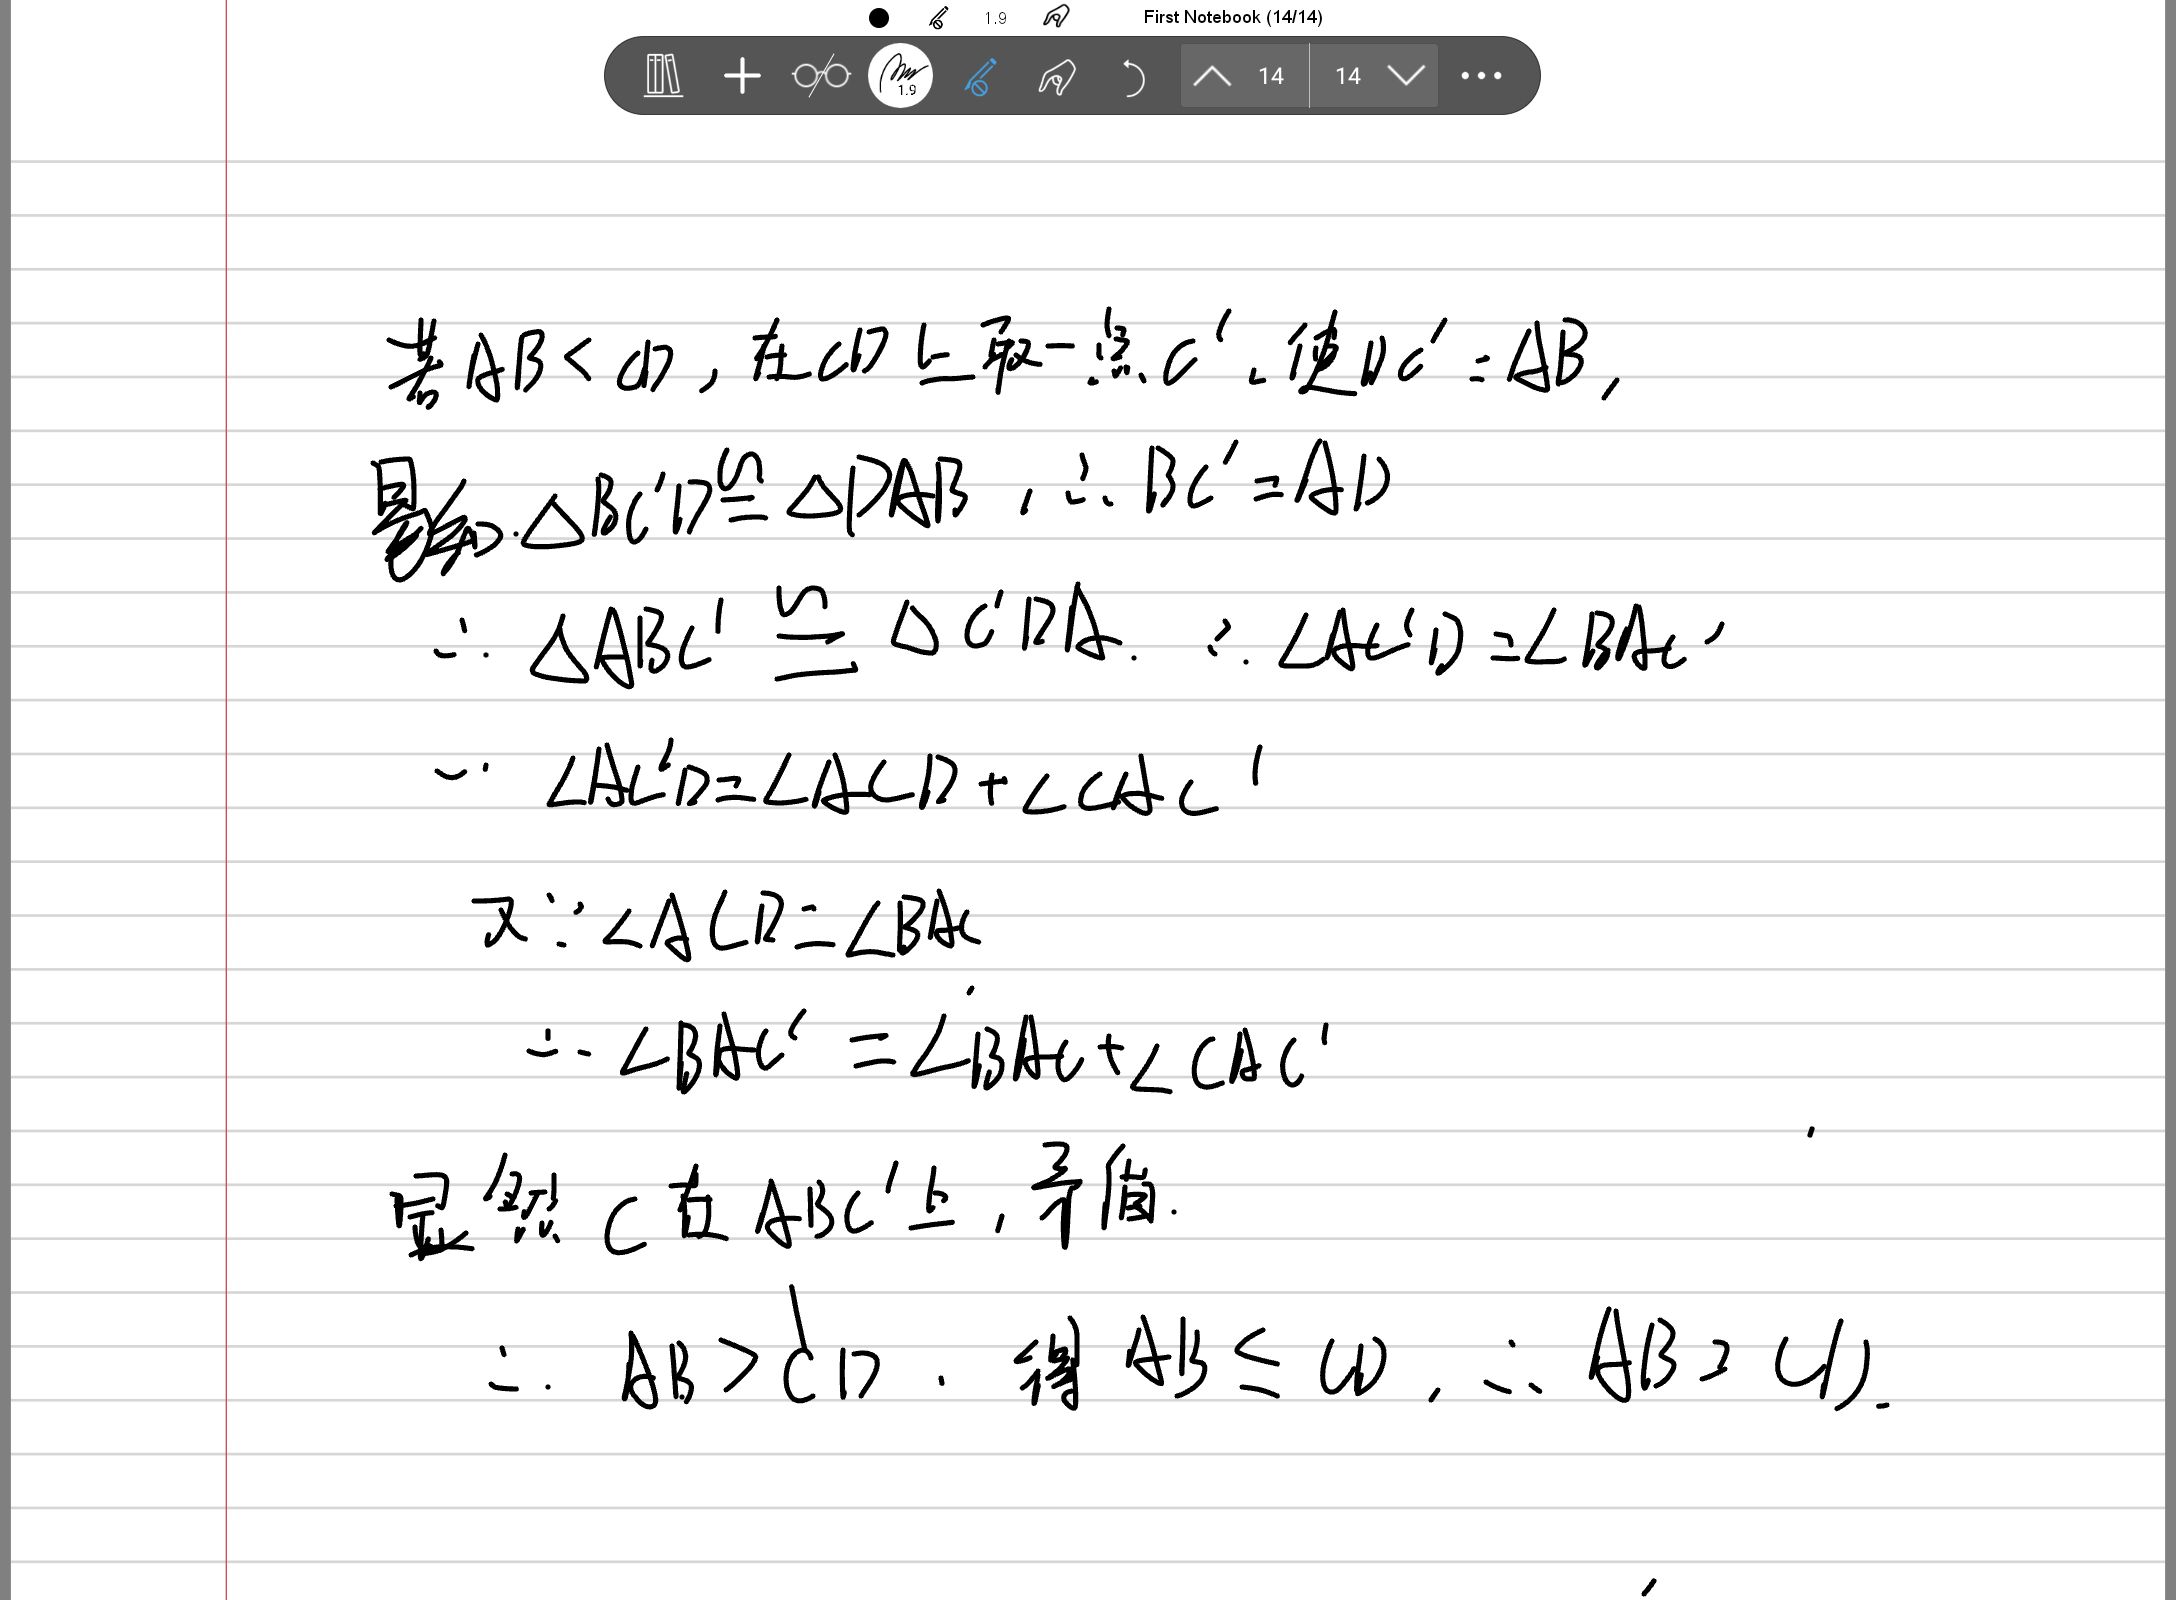 1.9 First Notebook (14/14)
1.9 14 14
若AB<CD,在CD上取一点C',使DC'=AB,
易知.△BC'D≌△DAB,∴BC'=AD
∴△ABC'≌△C'DA.∴∠AC'D=∠BAC'
∵∠AC'D=∠ACD+∠CAC'
又∵∠ACD=∠BAC
∴∠BAC'=∠BAC+∠CAC'
显然C在ABC'上,矛盾.
∴AB>CD.得AB≤CD,∴AB=CD.